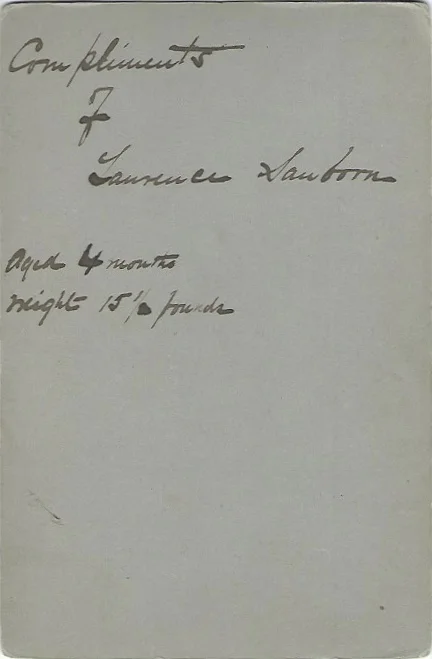 Compliments
of
Laurence Sanborn
Aged 4 months
Weight 15 1/2 pounds